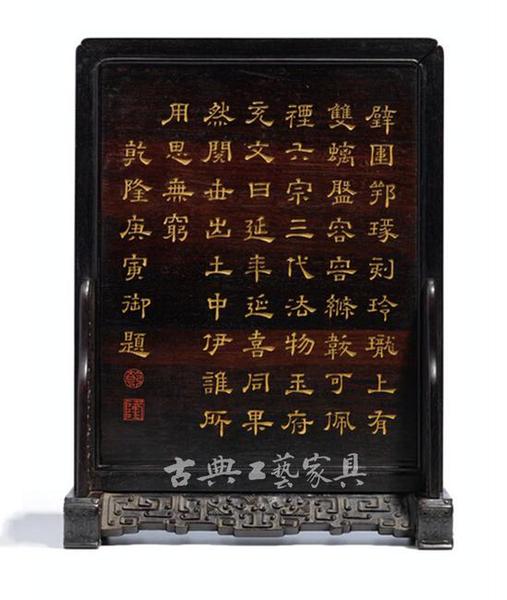 璧圍郛琢刻玲瓏上有
雙螭盤容容絛韍可佩
禋六宗三代法物玉府
充文曰延年延喜同果
然閱世出土中伊誰所
用思無窮
乾隆庚寅御題
古典工藝家具